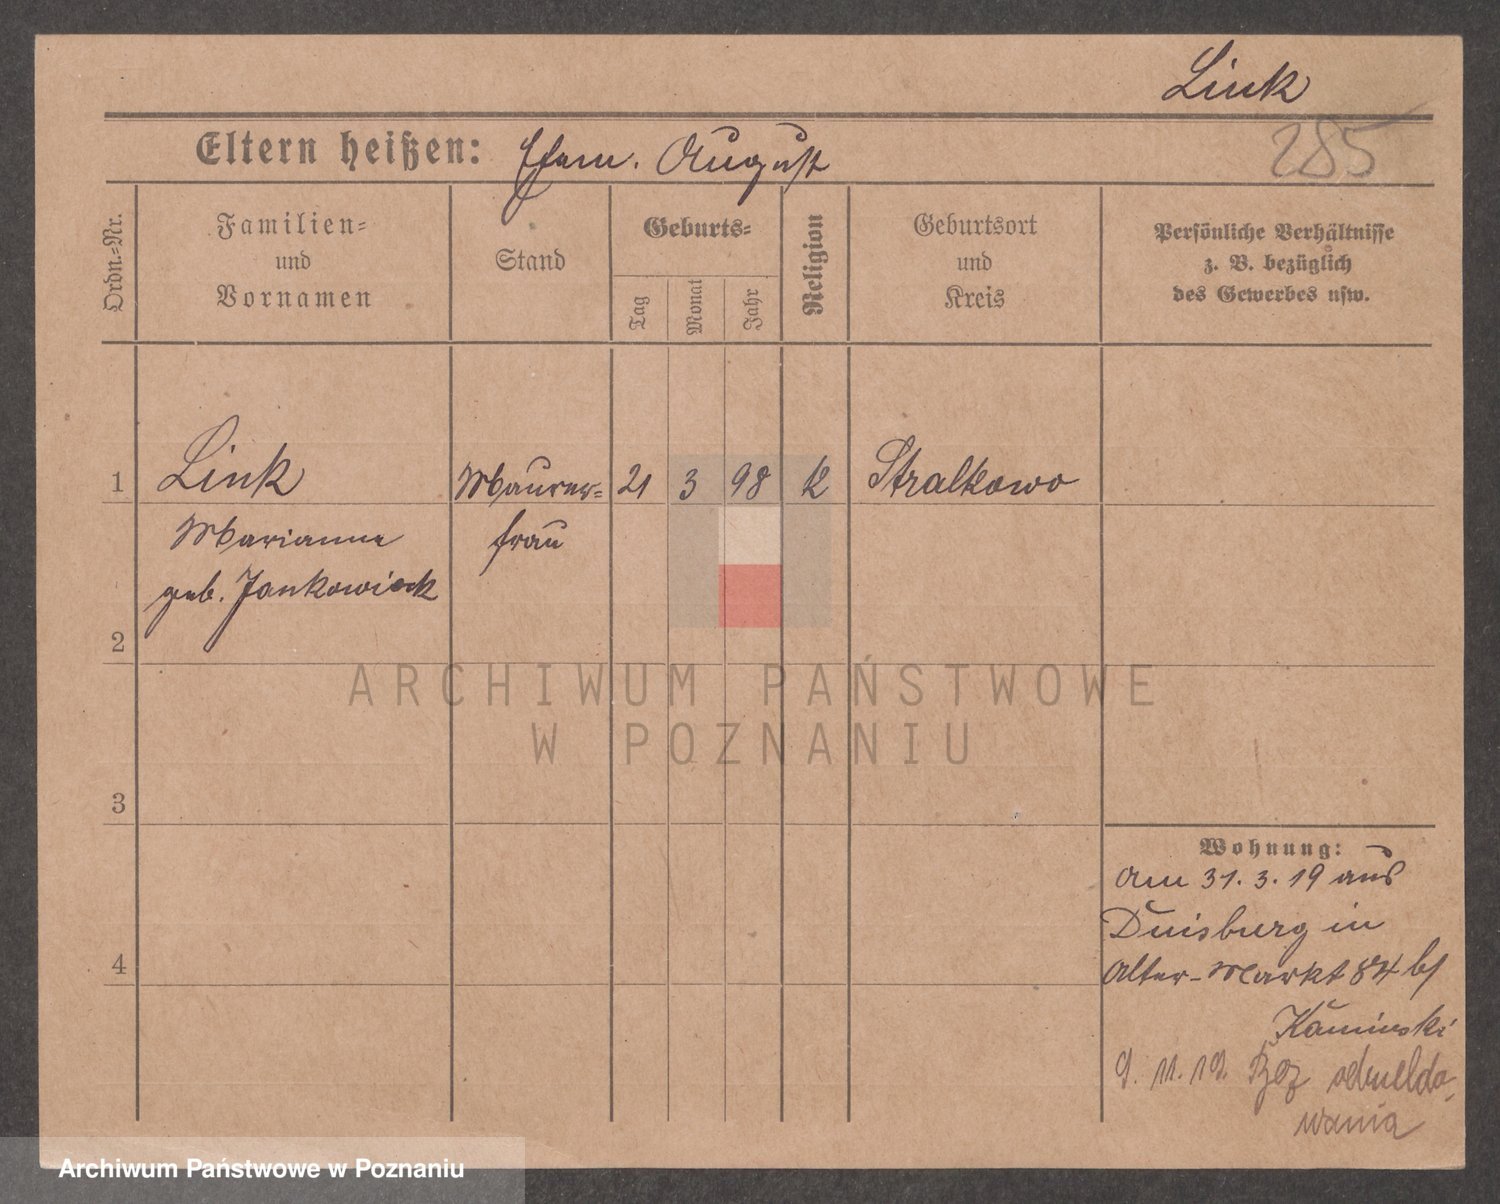 Link
285
Eltern heißen: Ehem. August
Ordn.-Nr.
Familien-
und
Vornamen
Stand
Geburts-
Tag
Monat
Jahr
Religion
Geburtsort
und
Kreis
Persönliche Verhältnisse
z. B. bezüglich
des Gewerbes usw.
1 Link Maurer- 21 3 98 K Stralkowo
Marianne frau
geb. Jankowiack
2
ARCHIWUM PAŃSTWOWE
W POZNANIU
3
Wohnung:
am 31. 3. 19 aus
Duisburg in
4 Alter-Markt 84 b/
Kaminski
9. 11. 19. Bez odmeldo-
wania
Archiwum Państwowe w Poznaniu